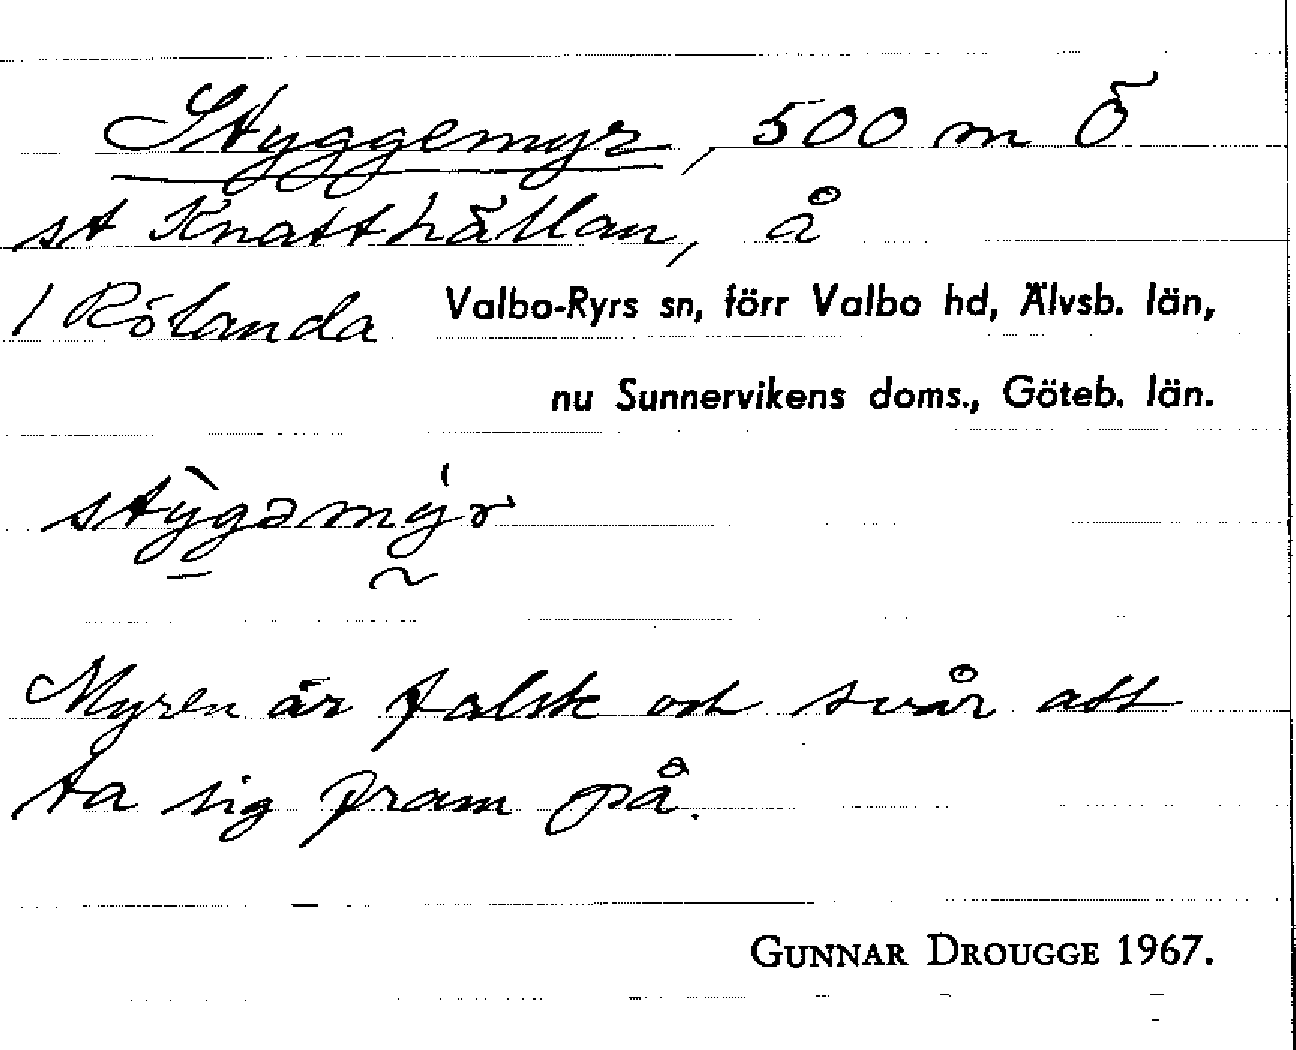 Styggemyr, 500 m Ö
st Knatthällan, å
1 Rölanda Valbo-Ryrs sn, förr Valbo hd, Älvsb. län,
nu Sunnervikens doms., Göteb. län.
stỳgəmýr
Myren är falsk och svår att
ta sig fram på.
GUNNAR DROUGGE 1967.